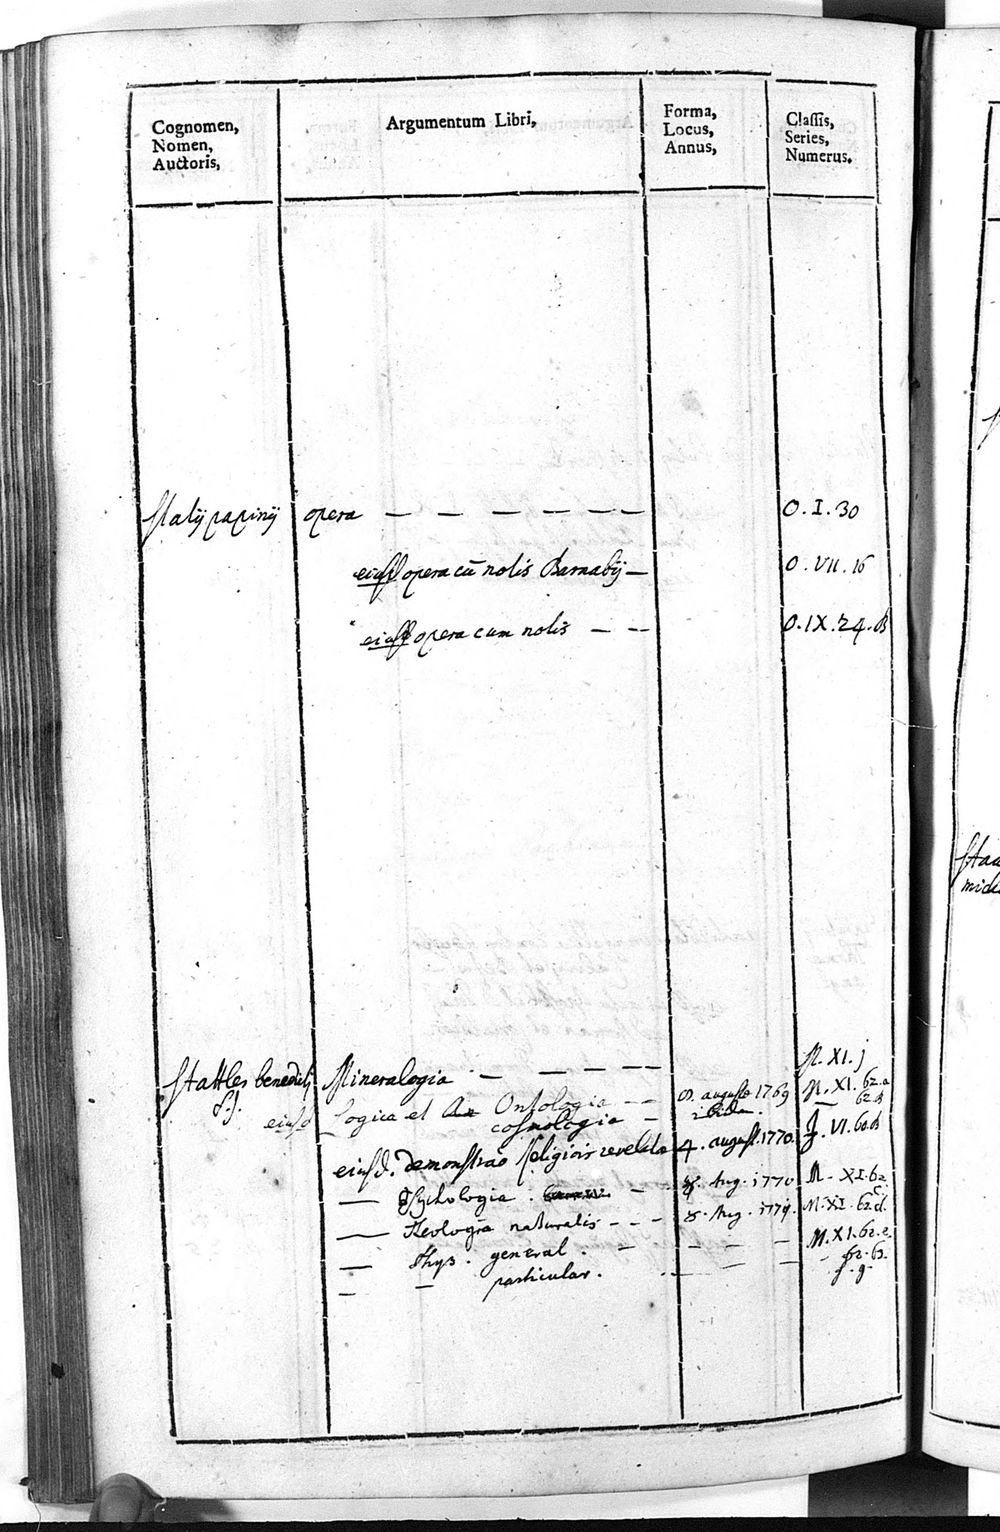 Cognomen,
Nomen,
Auctoris,
Argumentum Libri,
Forma,
Locus,
Annus,
Classis,
Series,
Numerus.
Statij papinij opera — — — — — — O. I. 30
eiusd opera cū notis Barnabij — O. VII. 16
eiusd opera cum notis — — O. IX. 24. B
M. XI. j
Stattler benedicti Mineralogia — — — — —
S.J. eiusd Logica et Ontologia — — 8. augustae 1769 M. XI. 62. a
cosmologia — ibidem. 62. B
eiusd. demonstrao Religiois revelata 4. august. 1770. J. VI. 60. B
— Psychologia. — 8. Aug. 1770 M. XI. 62.
c
— Teologia naturalis — — — 8. Aug. M. XI. 62. d.
— Phys. general. — — — — M. XI. 62. e.
62. 63.
— — particular. — — — f. g.
Stat